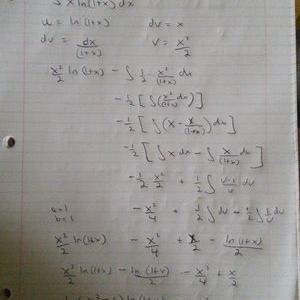 ∫ x ln(1+x) dx
u = ln(1+x) dv = x
du = dx/(1+x) v = x²/2
x²/2 ln(1+x) - ∫ 1/2 · x²/(1+x) dx
-1/2 [∫(x²/(1+x) dx)]
-1/2 [∫(x - x/(1+x)) dx]
-1/2 [∫ x dx - ∫ x/(1+x) dx]
-1/2 x²/2 + 1/2 ∫ (u-1)/u du
a=1 b=1 -x²/4 + 1/2 ∫ du - 1/2 ∫ 1/u du
x²/2 ln(1+x) - x²/4 + x/2 - ln(1+x)/2
x²/2 ln(1+x) - ln(1+x)/2 - x²/4 + x/2